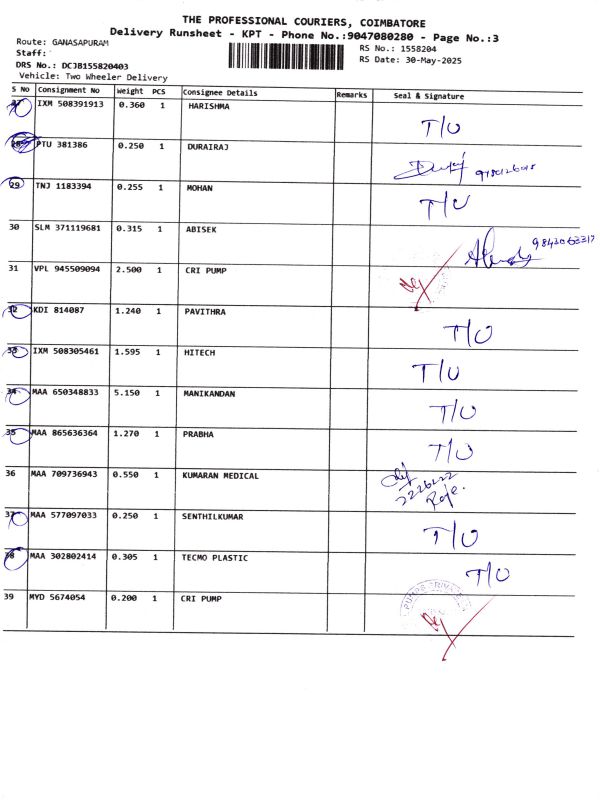 THE PROFESSIONAL COURIERS, COIMBATORE
Delivery Runsheet - KPT - Phone No.:9047080280 - Page No.:3
Route: GANASAPURAM
RS No.: 1558204
Staff:
RS Date: 30-May-2025
DRS No.: DCJB155820403
Vehicle: Two Wheeler Delivery
S No Consignment No Weight PCS Consignee Details Remarks Seal & Signature
27 IXM 508391913 0.360 1 HARISHMA T/U
28 PTU 381386 0.250 1 DURAIRAJ
29 TNJ 1183394 0.255 1 MOHAN T/U
30 SLM 371119681 0.315 1 ABISEK
31 VPL 945509094 2.500 1 CRI PUMP
32 KDI 814087 1.240 1 PAVITHRA T/U
33 IXM 508305461 1.595 1 HITECH T/U
34 MAA 650348833 5.150 1 MANIKANDAN T/U
35 MAA 865636364 1.270 1 PRABHA T/U
36 MAA 709736943 0.550 1 KUMARAN MEDICAL
37 MAA 577097033 0.250 1 SENTHILKUMAR T/U
38 MAA 302802414 0.305 1 TECMO PLASTIC T/U
39 MYD 5674054 0.200 1 CRI PUMP